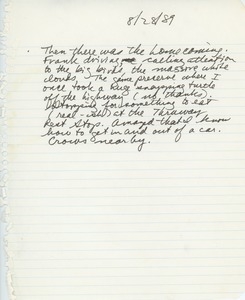 8/28/89
. Then there was the homecoming.
Frank driving calling attention
to the big birds, the massive white
clouds. The same preserve where I
once took a huge snapping turtle
off the highway (no thanks).
Stopping for something to eat
(real-ish) at the Thruway
Rest Stop. Amazed that I know
how to get in and out of a car.
Crows nearby.